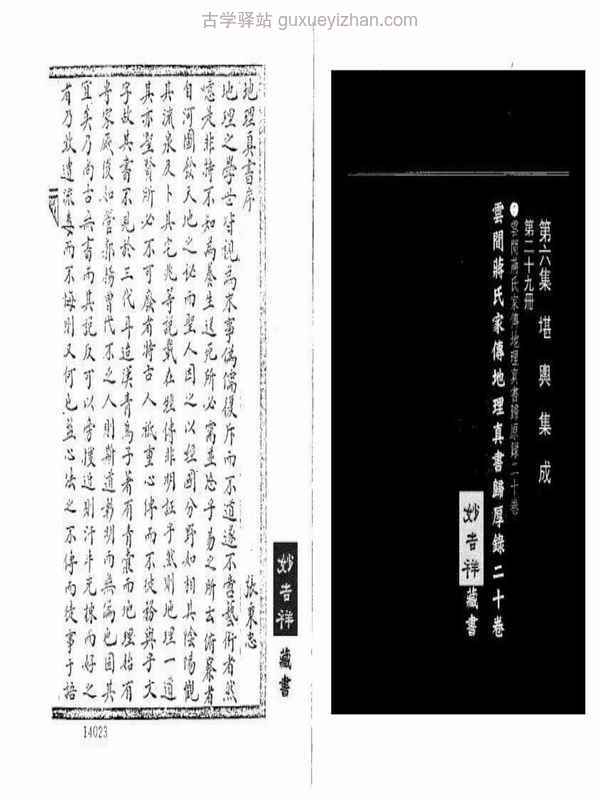 古学驿站 guxueyizhan.com
第六集 堪輿集成
第二十九冊
雲間蔣氏家傳地理真書歸厚錄二十卷
雲間蔣氏家傳地理真書歸厚錄二十卷
妙吉祥藏書
妙吉祥藏書
地理真書序
張東志
地理之學世皆視為末事偽儒復斥而不道遂不啻藝術者然
噫是非特不知為養生送死所必需並於乎易之所云俯察者
自河圖發天地之祕而聖人因之以經國分野如相其陰陽觀
其流泉及卜其宅兆等說載在經傳非明証乎然則地理一道
其亦聖賢所必不可廢者特古人祗重心傳而不
文
字故其書不見於三代
漢青烏子著有青囊而地理始有
專家厥後如管郭楊曾代不乏人則斯道彰明而無漏也固其
宜矣乃尚古無書而其說反可以旁
近則汗牛充棟而好之
者乃致遺流毒而不悔則又何也蓋心法之不傳而故事于語
14023